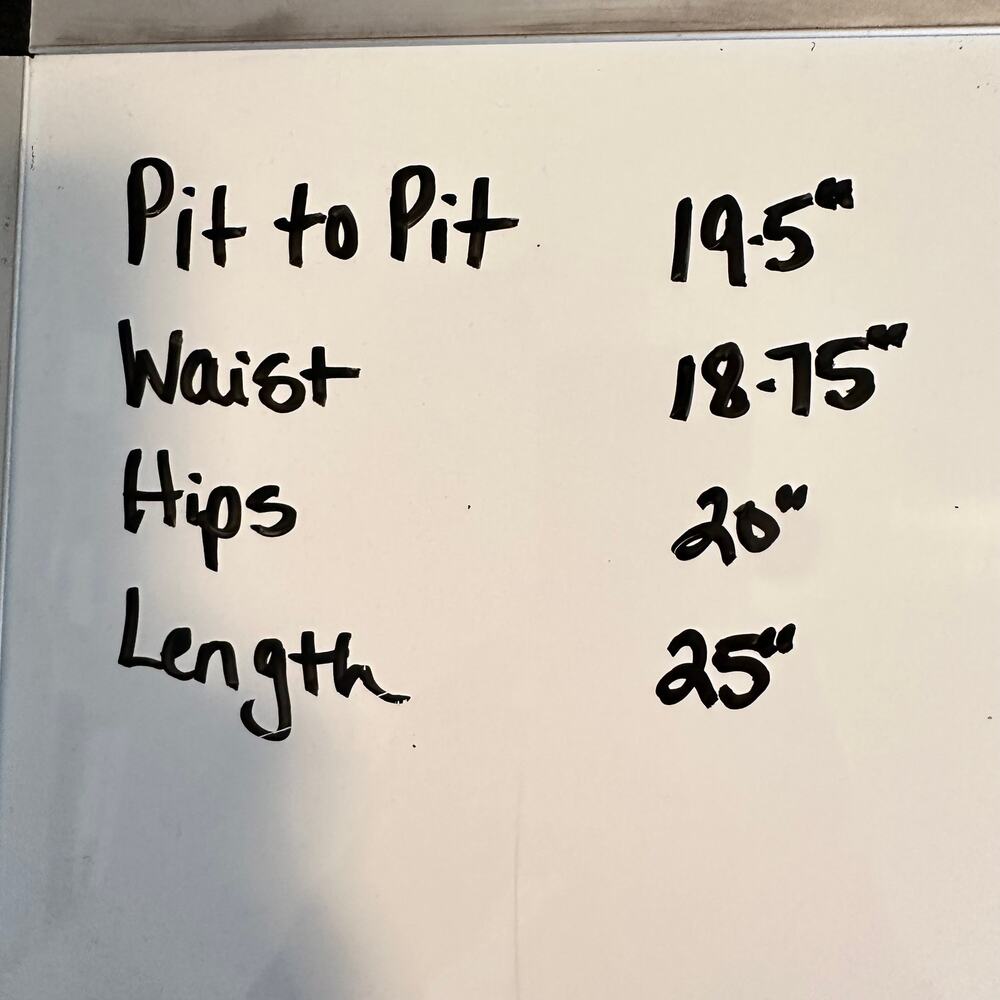 Pit to Pit 19.5"
Waist 18.75"
Hips 20"
Length 25"